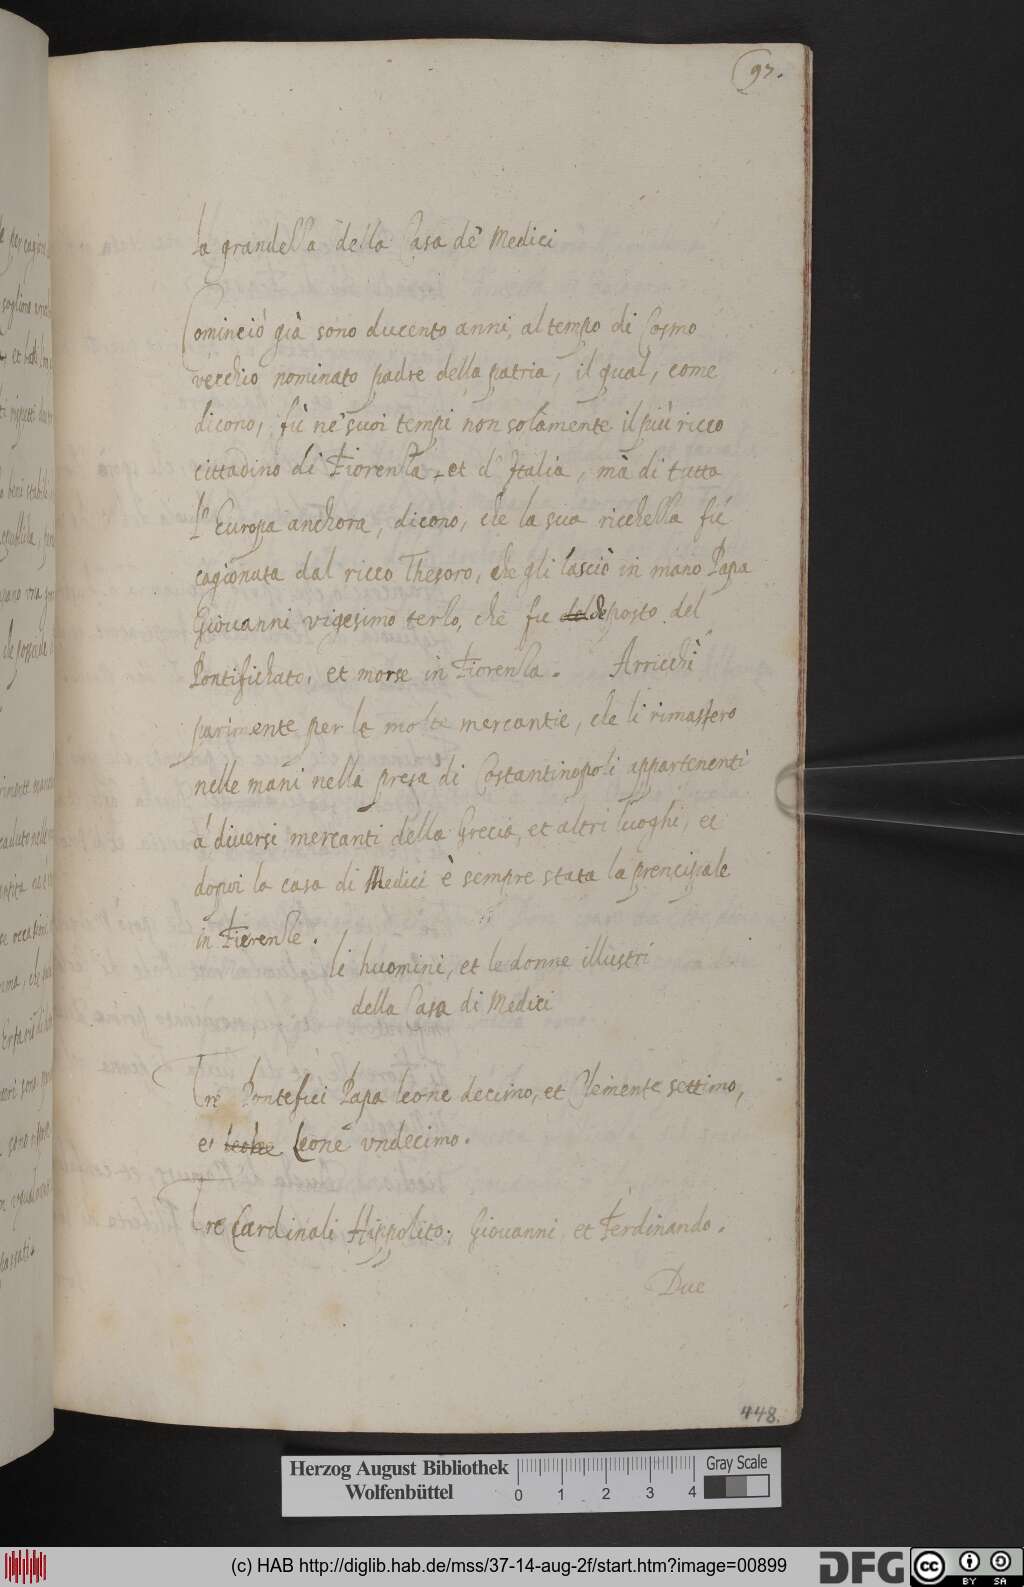 97.
la grandeßa della Casa de Medici
Cominciò già sono ducento anni, al tempo di Cosmo
vecchio nominato padre della patria, il qual, come
dicono, fù ne suoi tempi non solamente il più ricco
cittadino di Fiorenßa, et d'Italia, mà di tutta
l'Europa anchora, dicono, che la sua riccheßa fú
cagionata dal ricco Thesoro, che gli lasciò in mano Papa
Giovanni vigesimo terßo, che fu del deposto del
Pontifichato, et morse in Fiorenßa. Arricchì
parimente per le molte mercantie, che li rimasero
nelle mani nella presa di Costantinopoli appartenenti
á diversi mercanti della Grecia, et altri luoghi, et
doppoi la casa di Medici è sempre stata la prencipale
in Fierenße.
li huomini, et le donne illustri
della Casa di Medici
Tre Pontefici Papa leone decimo, et Clemente settimo,
et leone Leone vndecimo.
Tre Cardinali Hippolito, Giouanni et Ferdinando.
Due
448.
per cagion
sogliono
et
rispetti
beni stabile
vna
che possede
parimente
caduto nelle
che
sono
passati.
Herzog August Bibliothek
Wolfenbüttel
0 1 2 3 4
Gray Scale
(c) HAB http://diglib.hab.de/mss/37-14-aug-2f/start.htm?image=00899
DFG
cc BY SA